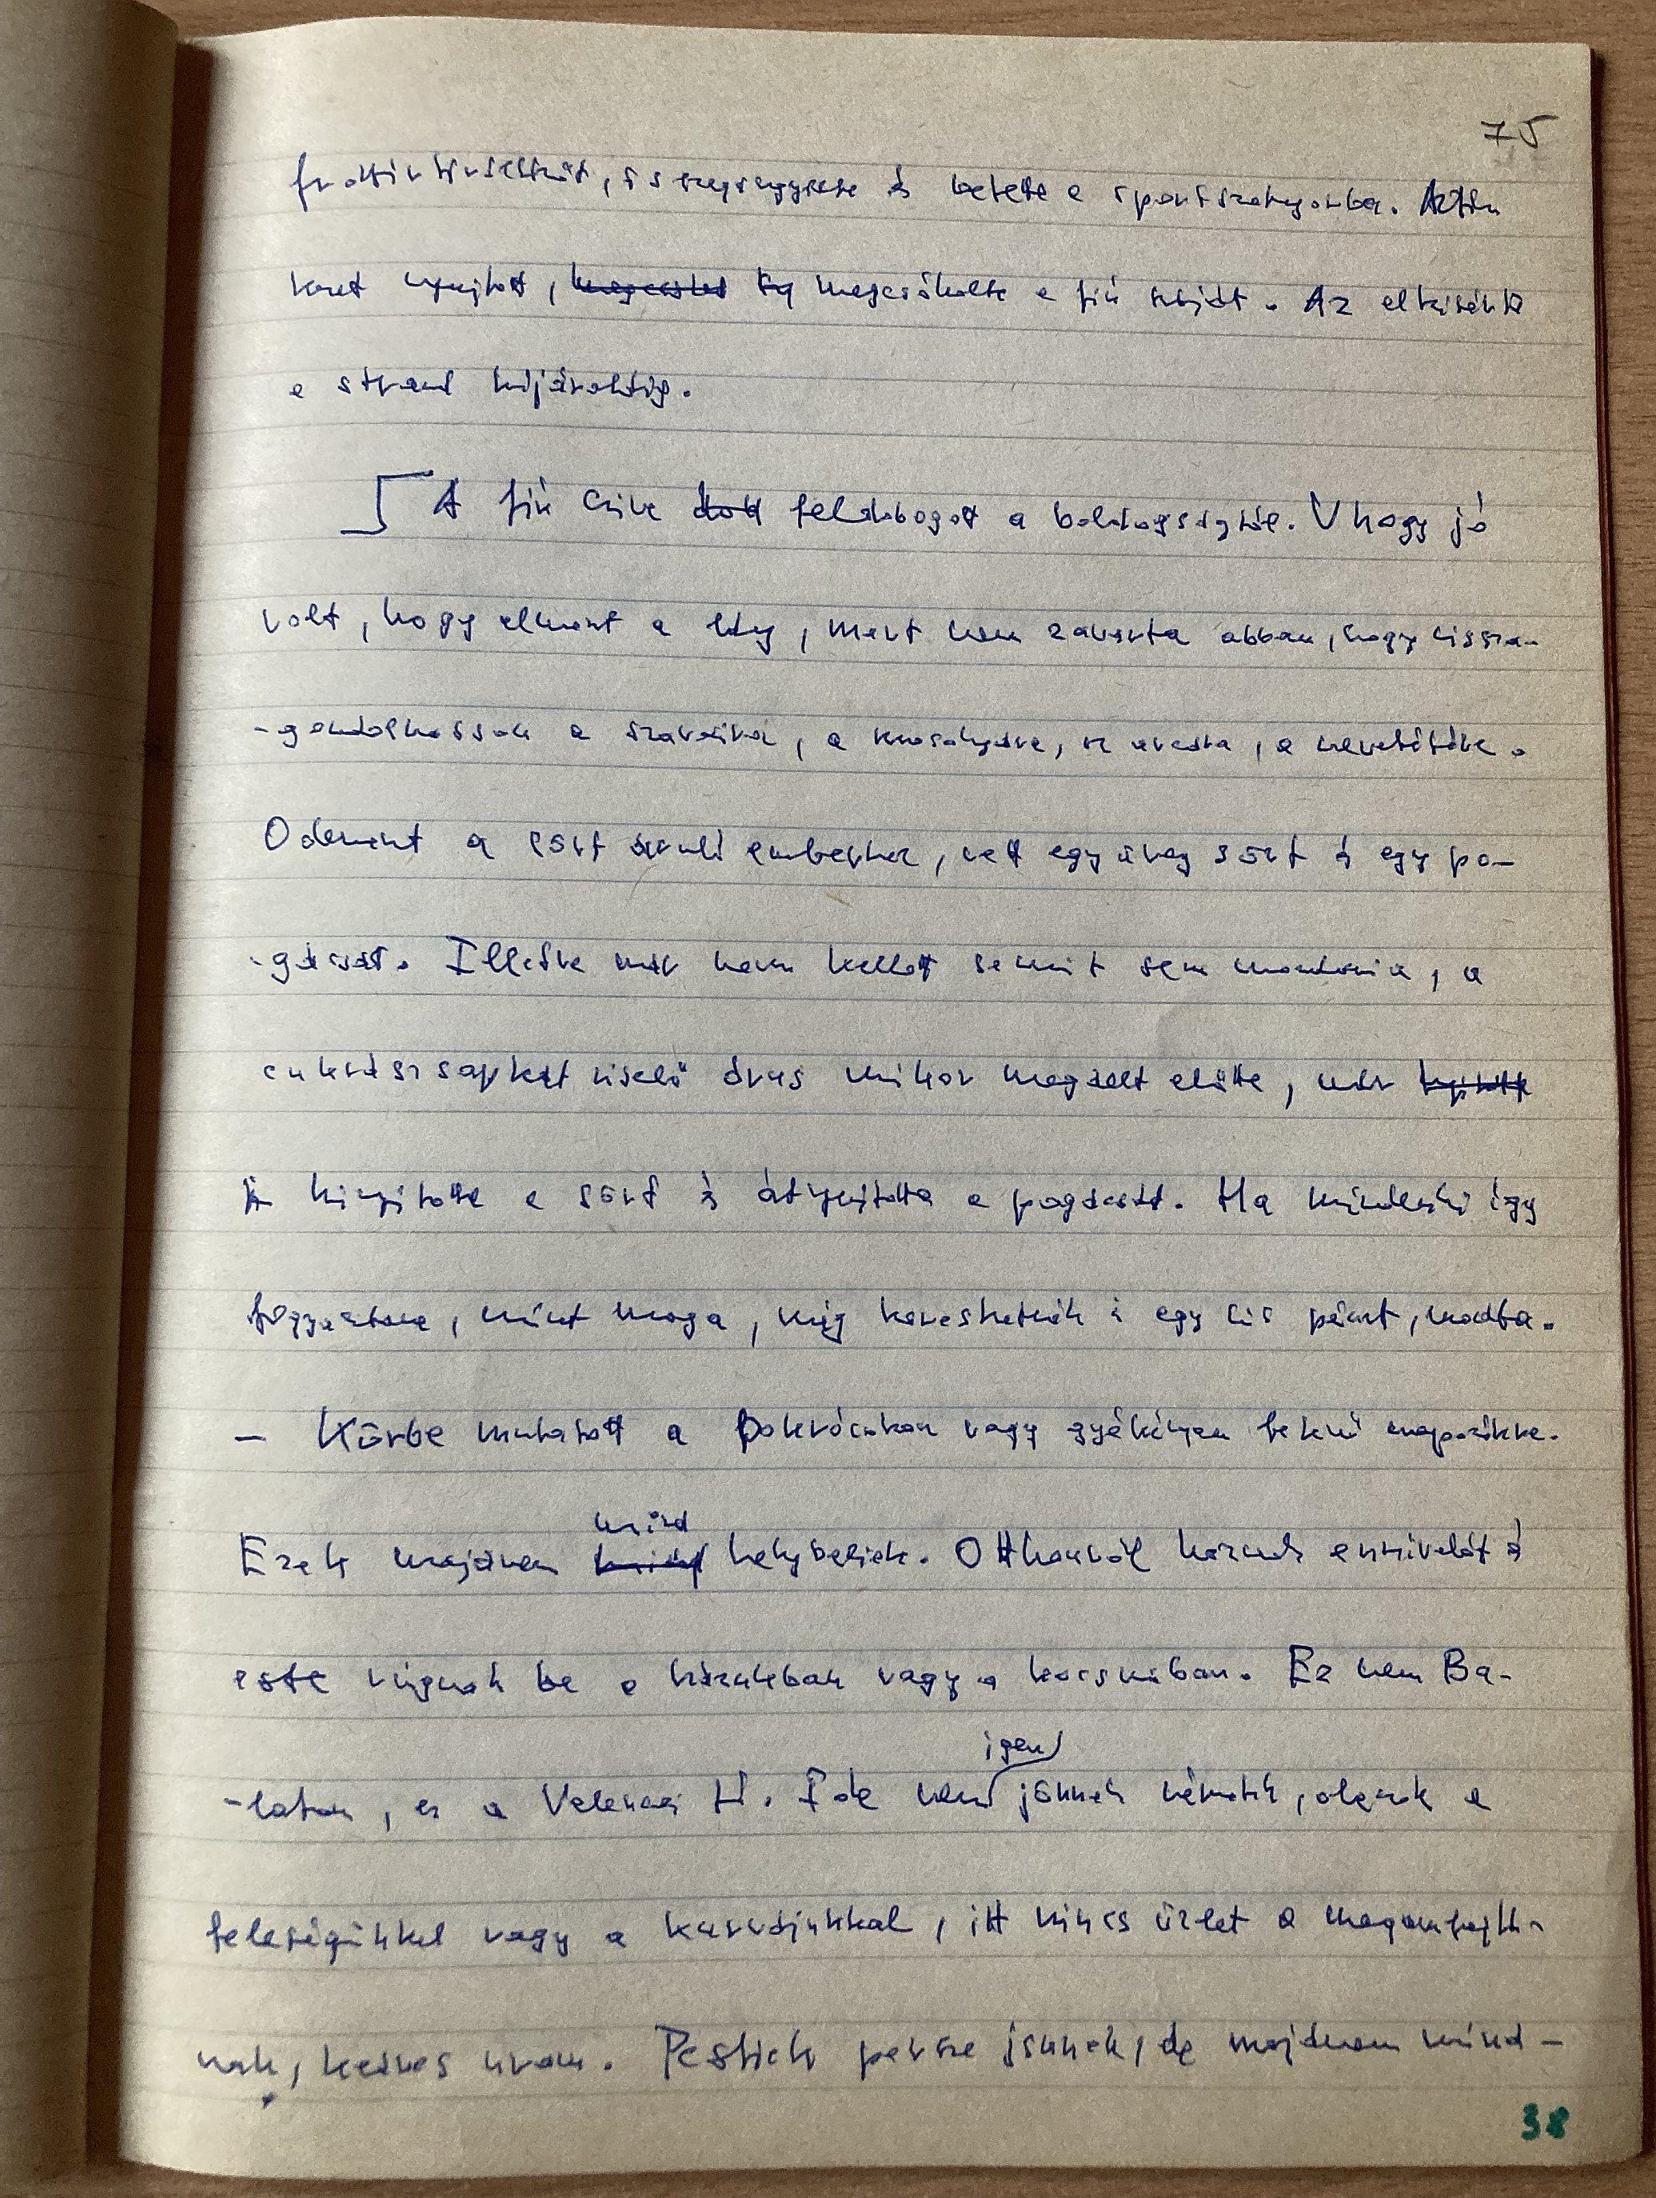 75
frottírtörülközőt, összegöngyölte és betette a sportszatyorba. Aztán
kezet nyújtott, megcsókolta a fiú száját. Az elkísérte
a strand kijáratáig.
A fiú szíve feldobogott a boldogságtól. S hogy jó
volt, hogy elment a lány, mert nem zavarta abban, hogy vissza-
-gondolhasson a szavaira, a mosolyára, az arcára, a nevetésére.
Odament a sört áruló emberhez, vett egy üveg sört és egy po-
-gácsát. Illetve már nem kellett semmit sem mondania, a
cukrászsapkát viselő árus mikor megállt előtte, már
kinyitotta a sört és átnyújtotta a pogácsát. Ha mindenki így
fogyasztana, mint maga, még kereshetnék is egy kis pénzt, mondta.
– Körbe mutatott a pokrócokon vagy gyékényen fekvő napozókra.
Ezek majdnem mind helybeliek. Otthonról hoznak ennivalót és
este rúgnak be a házukban vagy a kocsmában. Ez nem Ba-
-laton, ez a Velencei tó. Ide nem igen jönnek németek, olaszok a
feleségükkel vagy a kurvájukkal, itt nincs üzlet a magamfajtá-
nak, kedves uram. Pestiek persze jönnek, de majdnem mind-
38